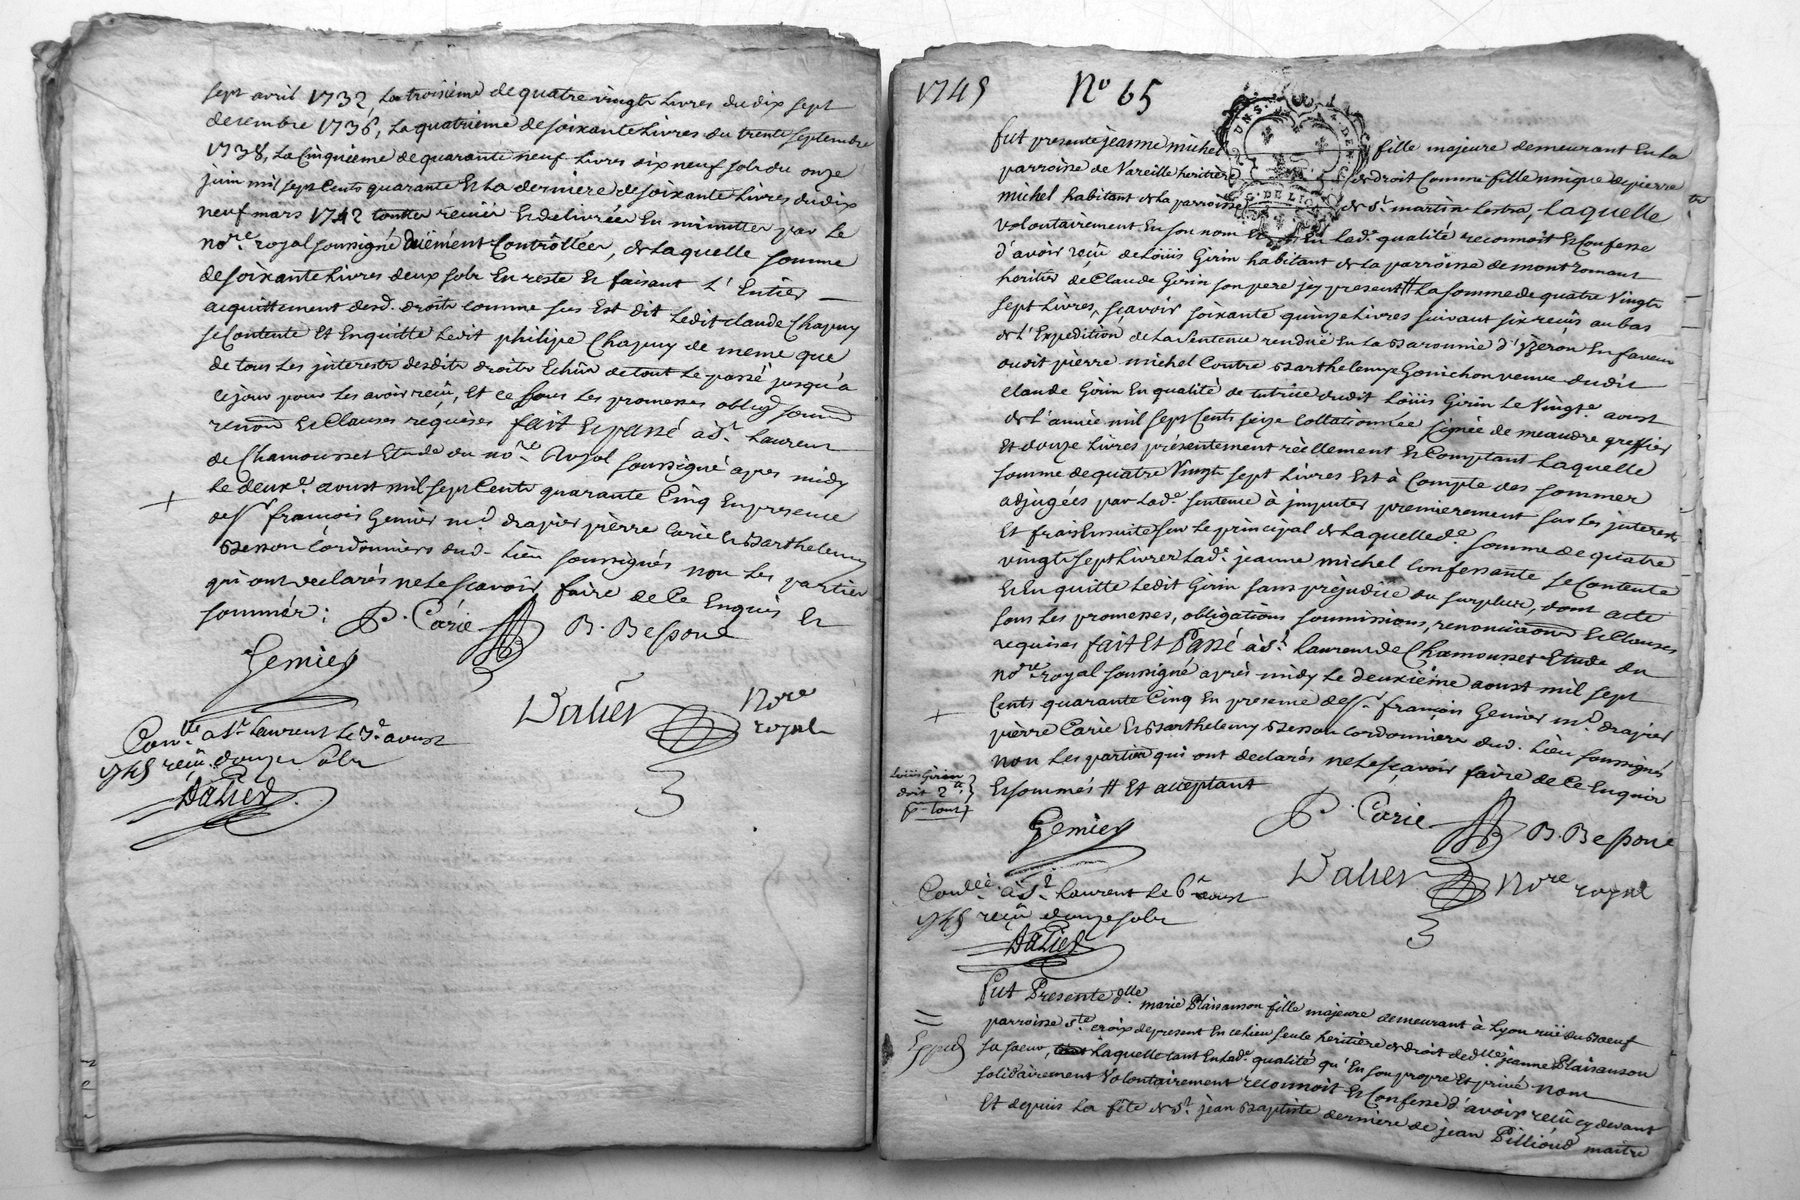 sept avril 1732, La troisieme de quatre vingts Livres du dix sept
decembre 1736, La quatrieme de soixante Livres du trente septembre
1738, La Cinquieme de quarante neuf Livres dix neuf sols du onze
juin mil sept Cents quarante Et La derniere de soixante Livres du dix
neuf mars 1742 toutter receüe Et delivrées En minuttes par Le
nore. royal soussigné duëment Controllées, de Laquelle somme
de soixante Livres deux sols En reste Et faisant L'Entier
acquittement desd. droits comme sus Est dit Ledit claude Chapuy
se Contente Et Enquitte Ledit philipe Chapuy de meme que
de tous Les jnterests desdits droits Echûs de tout Le passé jusqu'a
Ce jour pour Les avoir reçû, Et ce sous Les promesses oblig. soum.
renon. Et Clauses requises fait Et passé à St. Laurent
de Chamousset Etude du nore. Royal soussigné apres midy
Le deuxe. aoust mil sept Cents quarante Cinq En presence
de Sr. françois Gemier md. drapier pierre Carie Et Barthelemy
Besson Cordonniers dud. Lieu soussignés non Les parties
qui ont declarés ne Le sçavoir faire de Ce Enquis Et
sommés :
P. Carie B. Bessone
Gemier
Dalier Nore
royal
Conlle. a St. Laurent Le 7e. aoust
1745 reçû douze sols
Dalier
1745 No 65
fut presente jeanne michel fille majeure demeurant En La
parroisse de Vareille heritiere de droit Comme fille unique de pierre
michel habitant de La parroisse de St. martin Lestra, Laquelle
volontairement En son nom Et En Lade. qualité reconnoit Et Confesse
d'avoir reçû de Loüis Girin habitant de La parroisse de montromant
heritier de Claude Girin son pere jcy present # La somme de quatre Vingts
sept Livres, sçavoir soixante quinze Livres suivant six reçûs au bas
de L'Expedition de La sentence rendüe En La Baronnie d'yzeron En faveur
dudit pierre michel Contre Barthelemye Gonichon veuve dudit
Claude Girin En qualité de tutrice dudit Loüis Girin Le Vingte. aoust
de L'année mil sept Cents seize Collationnée signée de meaudre greffier
Et douze Livres présentement réellement Et Comptant Laquelle
somme de quatre Vingt sept Livres Est à Compte des sommes
adjugées par Lade. sentence à jmputer premierement sur Les jnterests
Et frais Ensuitte sur Le principal de Laquellede. somme de quatre
vingts sept Livres Lade. jeanne michel Confessante se Contente
Et En quitte Ledit Girin sans préjudice du surplus, dont acte
sous Les promesses, obligations soumissions, renonciaons Et Clauses
requises fait Et Passé à St. Laurent de Chamousset Etude du
Nore. royal soussigné après midy Le deuxiéme aoust mil sept
Cents quarante Cinq En presence de Sr. françois Gemier md. drapier
pierre Carie Et Barthelemy Besson Cordonniers dud. Lieu soussignés
non Les parties qui ont declarés ne Le sçavoir faire de Ce Enquis
Et sommés # Et acceptant
Loüis Girin
doit 2tt.
pr. tout
Gemier
P. Carie B. Bessone
Dalier Nore royal
Conllé. à St. Laurent Le 6e. aoust
1745 reçû douze sols
Dalier
fut Presente dlle marie Plaisanson fille majeure demeurant à Lyon rüe du Boeuf
parroisse Ste. croix de present En ce Lieu seule heritiere de droit de dlle jeanne Plaisanson
sa soeur, Laquelle tant En Lade. qualité qu'En son propre Et privé nom
solidairement Volontairement reconnoit Et Confesse d'avoir reçû cy devant
Et depuis La fête de St. jean Baptiste derniere de jean Pillioud maitre
Exped